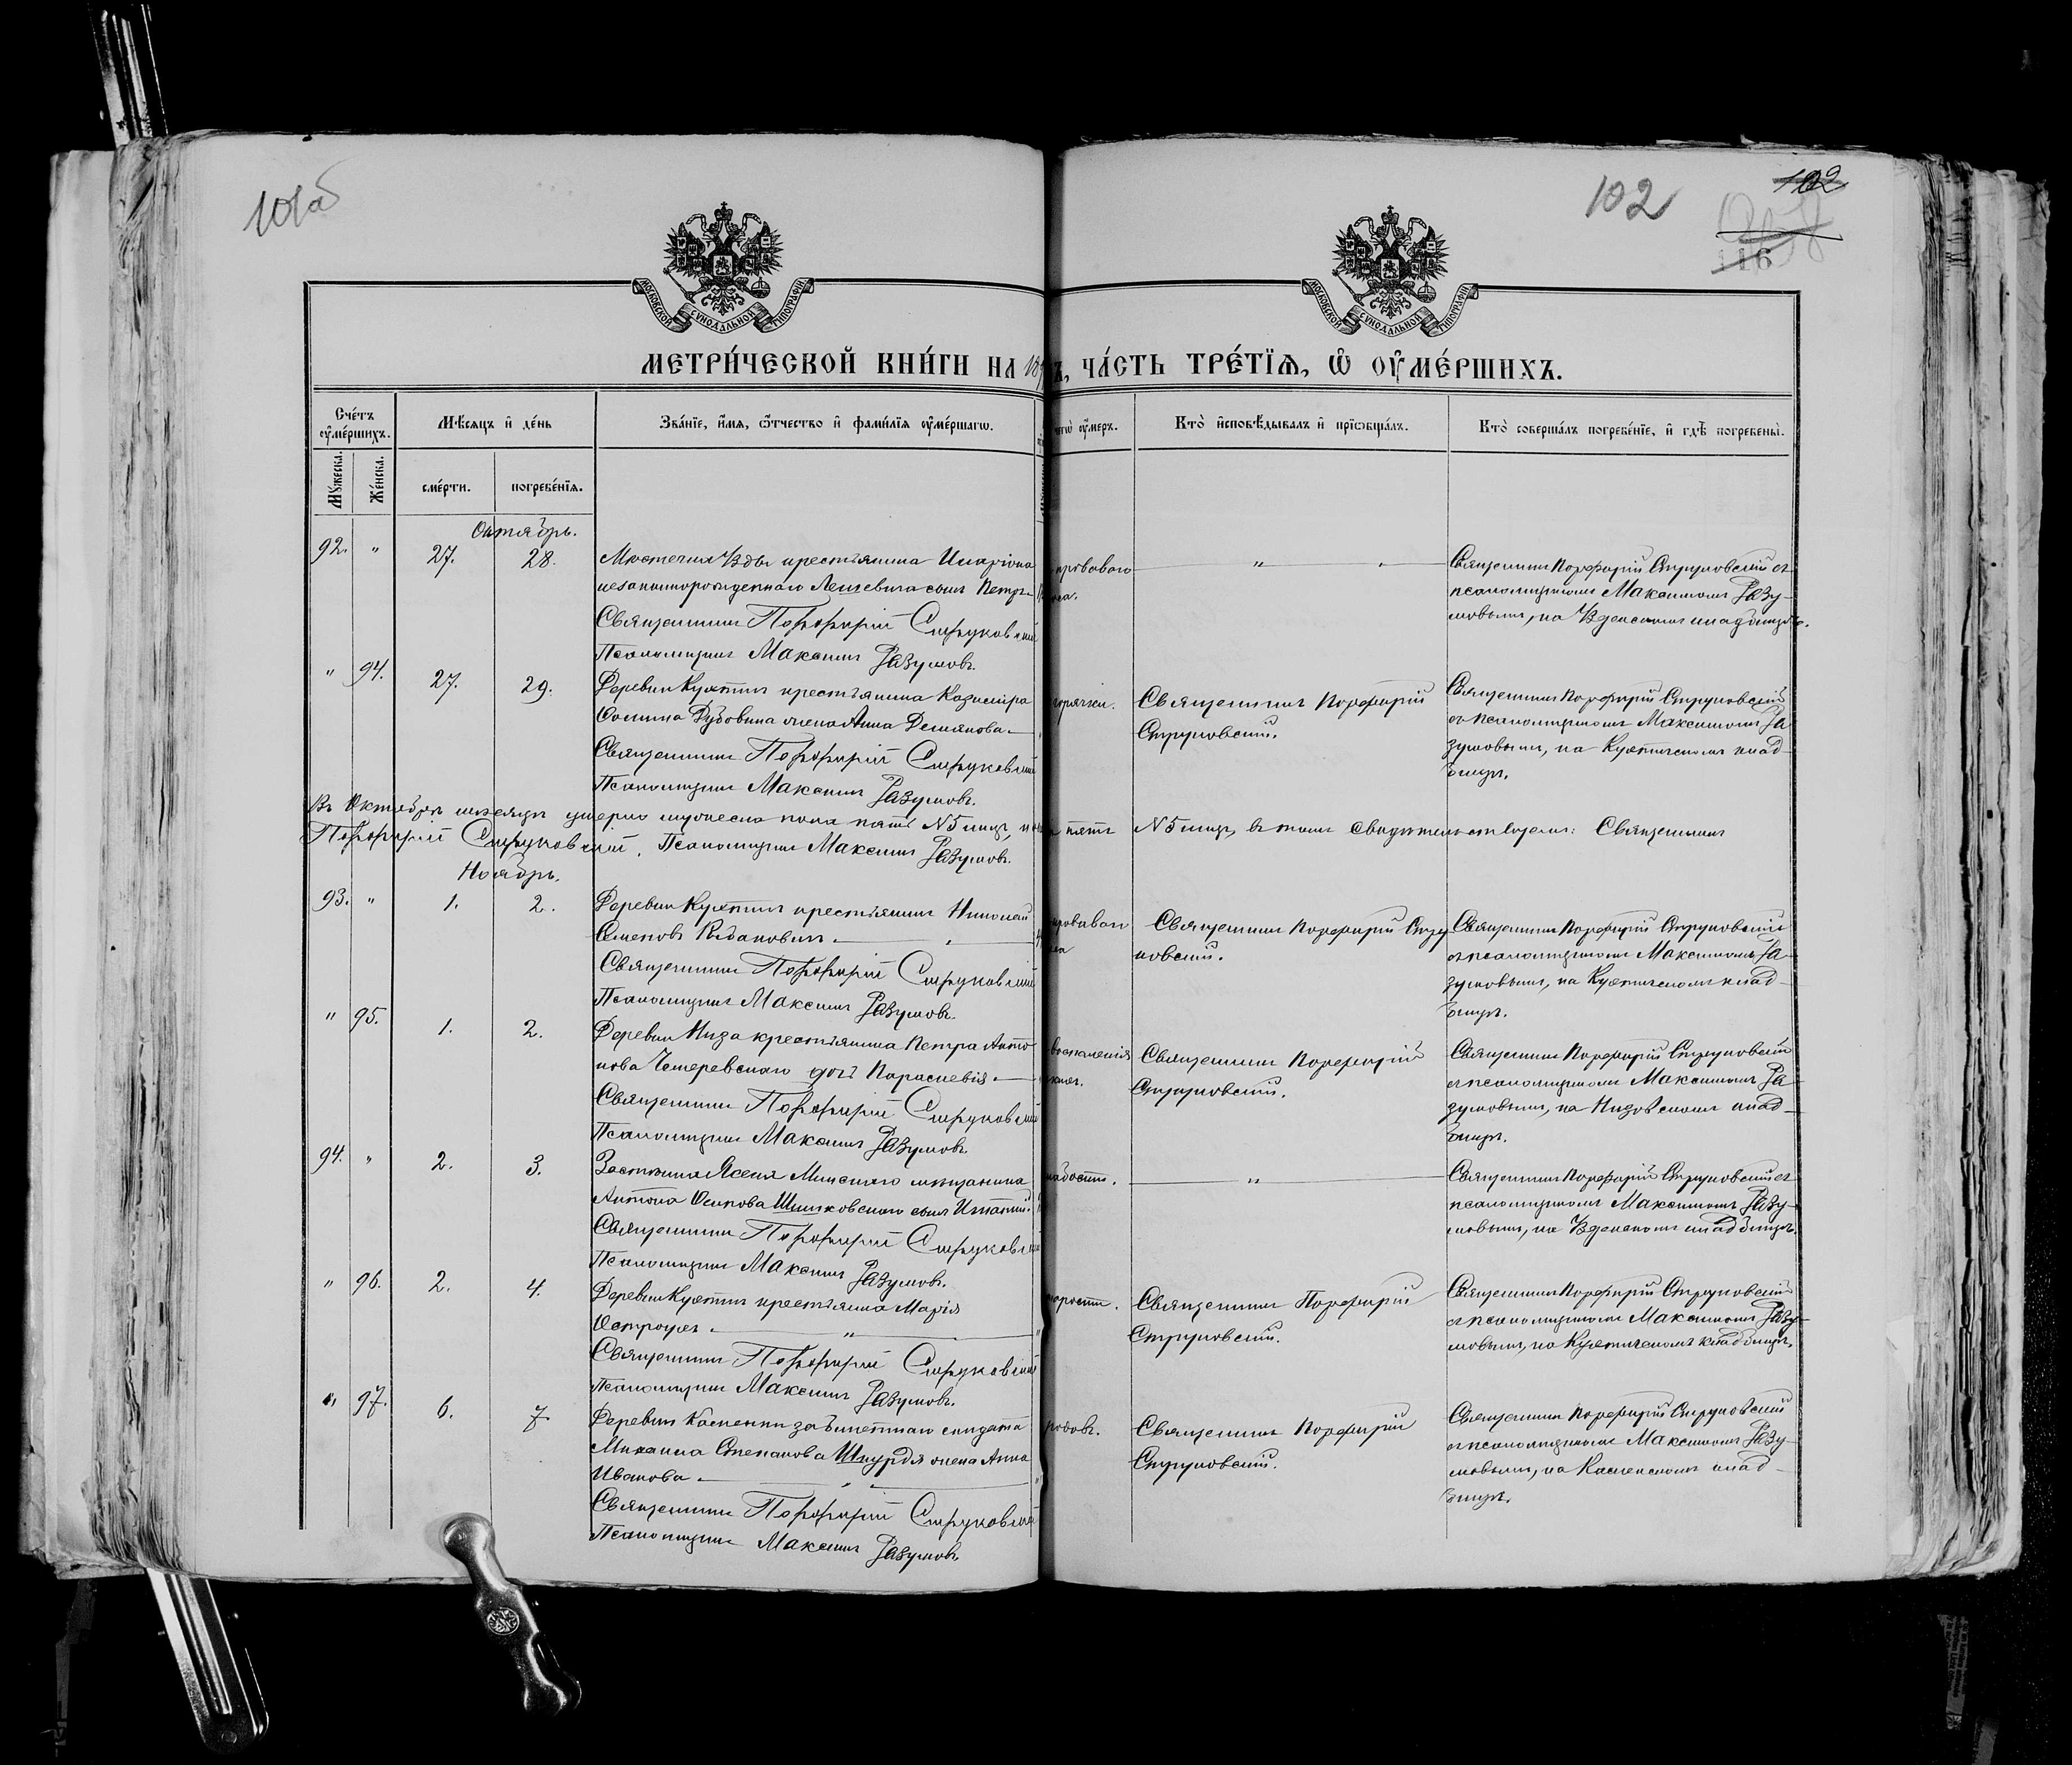 101об
102
102
116
МОСКОВСКОЙ СѴНОДАЛЬНОЙ ТИПОГРАФІИ
МОСКОВСКОЙ СѴНОДАЛЬНОЙ ТИПОГРАФІИ
МЕТРИ́ЧЕСКОЙ КНИ́ГИ НА 18
Ъ, ЧА́СТЬ ТРЕ́ТЇѦ, Ѡ҆ ОУ҆МЕ́РШИХЪ.
Сче́тъ оу҆ме́ршихъ.
Мꙋ́жеска.
Же́нска.
Мѣ́сѧцъ и҆ де́нь
сме́рти.
погребе́нїѧ.
Зва́нїе, и҆́мѧ, ѻ҆́тчество и҆ фами́лїѧ оу҆ме́ршагѡ.
чегѡ̀ оу҆́меръ.
Кто̀ и҆сповѣ́дывалъ и҆ прїѡбща́лъ.
Кто̀ соверша́лъ погребе́нїе, и҆ гдѣ̀ погребены̀.
Октябрь.
92. " 27. 28.
Мѣстечка Узды крестьянина Иларіона
незаконнорожденнаго Лешевича сынъ Петръ
Священникъ Порфирій Струковскій
Псаломщикъ Максимъ Разумовъ.
кроваваго
" "
Священникъ Порфирій Струковскій съ
псаломщикомъ Максимомъ Разу-
мовымъ, на Узденскомъ кладбищѣ.
" 94. 27. 29.
Деревни Кухтичъ крестьянина Казиміра
Фомина Дубовика жена Анна Демянова
Священникъ Порфирій Струковскій
Псаломщикъ Максимъ Разумовъ.
горячки.
Священникъ Порфирій
Струковскій.
Священникъ Порфирій Струковскій
съ псаломщикомъ Максимомъ Ра
зумовымъ, на Кухтичскомъ клад
бищѣ.
Въ Октябрѣ мѣсяцѣ умерло мужеска пола пять №5 лицъ,
пять №5 лицъ, въ томъ свидѣтельствуемъ: Священникъ
Порфирій Струковскій. Псаломщикъ Максимъ Разумовъ.
Ноябрь.
93. " 1. 2.
Деревни Кухтичъ крестьянинъ Николай
Семеновъ
Священникъ Порфирій Струковскій
Псаломщикъ Максимъ Разумовъ.
кроваваго
Священникъ Порфирій Стру
ковскій.
Священникъ Порфирій Струковскій
съ псаломщикомъ Максимомъ Ра-
зумовымъ, на Кухтичскомъ клад-
бищѣ.
" 95. 1. 2.
Деревни Низа крестьянина Петра Анто
нова Чечеревскаго дочь Параскевія
Священникъ Порфирій Струковскій
Псаломщикъ Максимъ Разумовъ.
воспаленія
Священникъ Порфирій
Струковскій.
Священникъ Порфирій Струковскій
съ псаломщикомъ Максимомъ Ра-
зумовымъ, на Низовскомъ клад-
бищѣ.
94. " 2. 3.
Застѣнка Ясеня Минскаго мѣщанина
Антона Осипова Шишковскаго сынъ Игнатій
Священникъ Порфирій Струковскій
Псаломщикъ Максимъ Разумовъ.
слабости.
"
Священникъ Порфирій Струковскій съ
псаломщикомъ Максимомъ Разу-
мовымъ, на Узденскомъ кладбищѣ.
" 96. 2. 4.
Деревни Кухтичъ крестьянка Марія
Островух
Священникъ Порфирій Струковскій
Псаломщикъ Максимъ Разумовъ.
старости.
Священникъ Порфирій
Струковскій.
Священникъ Порфирій Струковскій
съ псаломщикомъ Максимомъ Разу-
мовымъ, на Кухтичскомъ кладбищѣ.
" 97. 6. 7.
Деревни Каменки забилетнаго солдата
Михаила Степанова Шкурдя жена Анна
Иванова.
Священникъ Порфирій Струковскій
Псаломщикъ Максимъ Разумовъ.
родовъ.
Священникъ Порфирій
Струковскій.
Священникъ Порфирій Струковскій
съ псаломщикомъ Максимомъ Разу-
мовымъ, на Каменскомъ клад-
бищѣ.